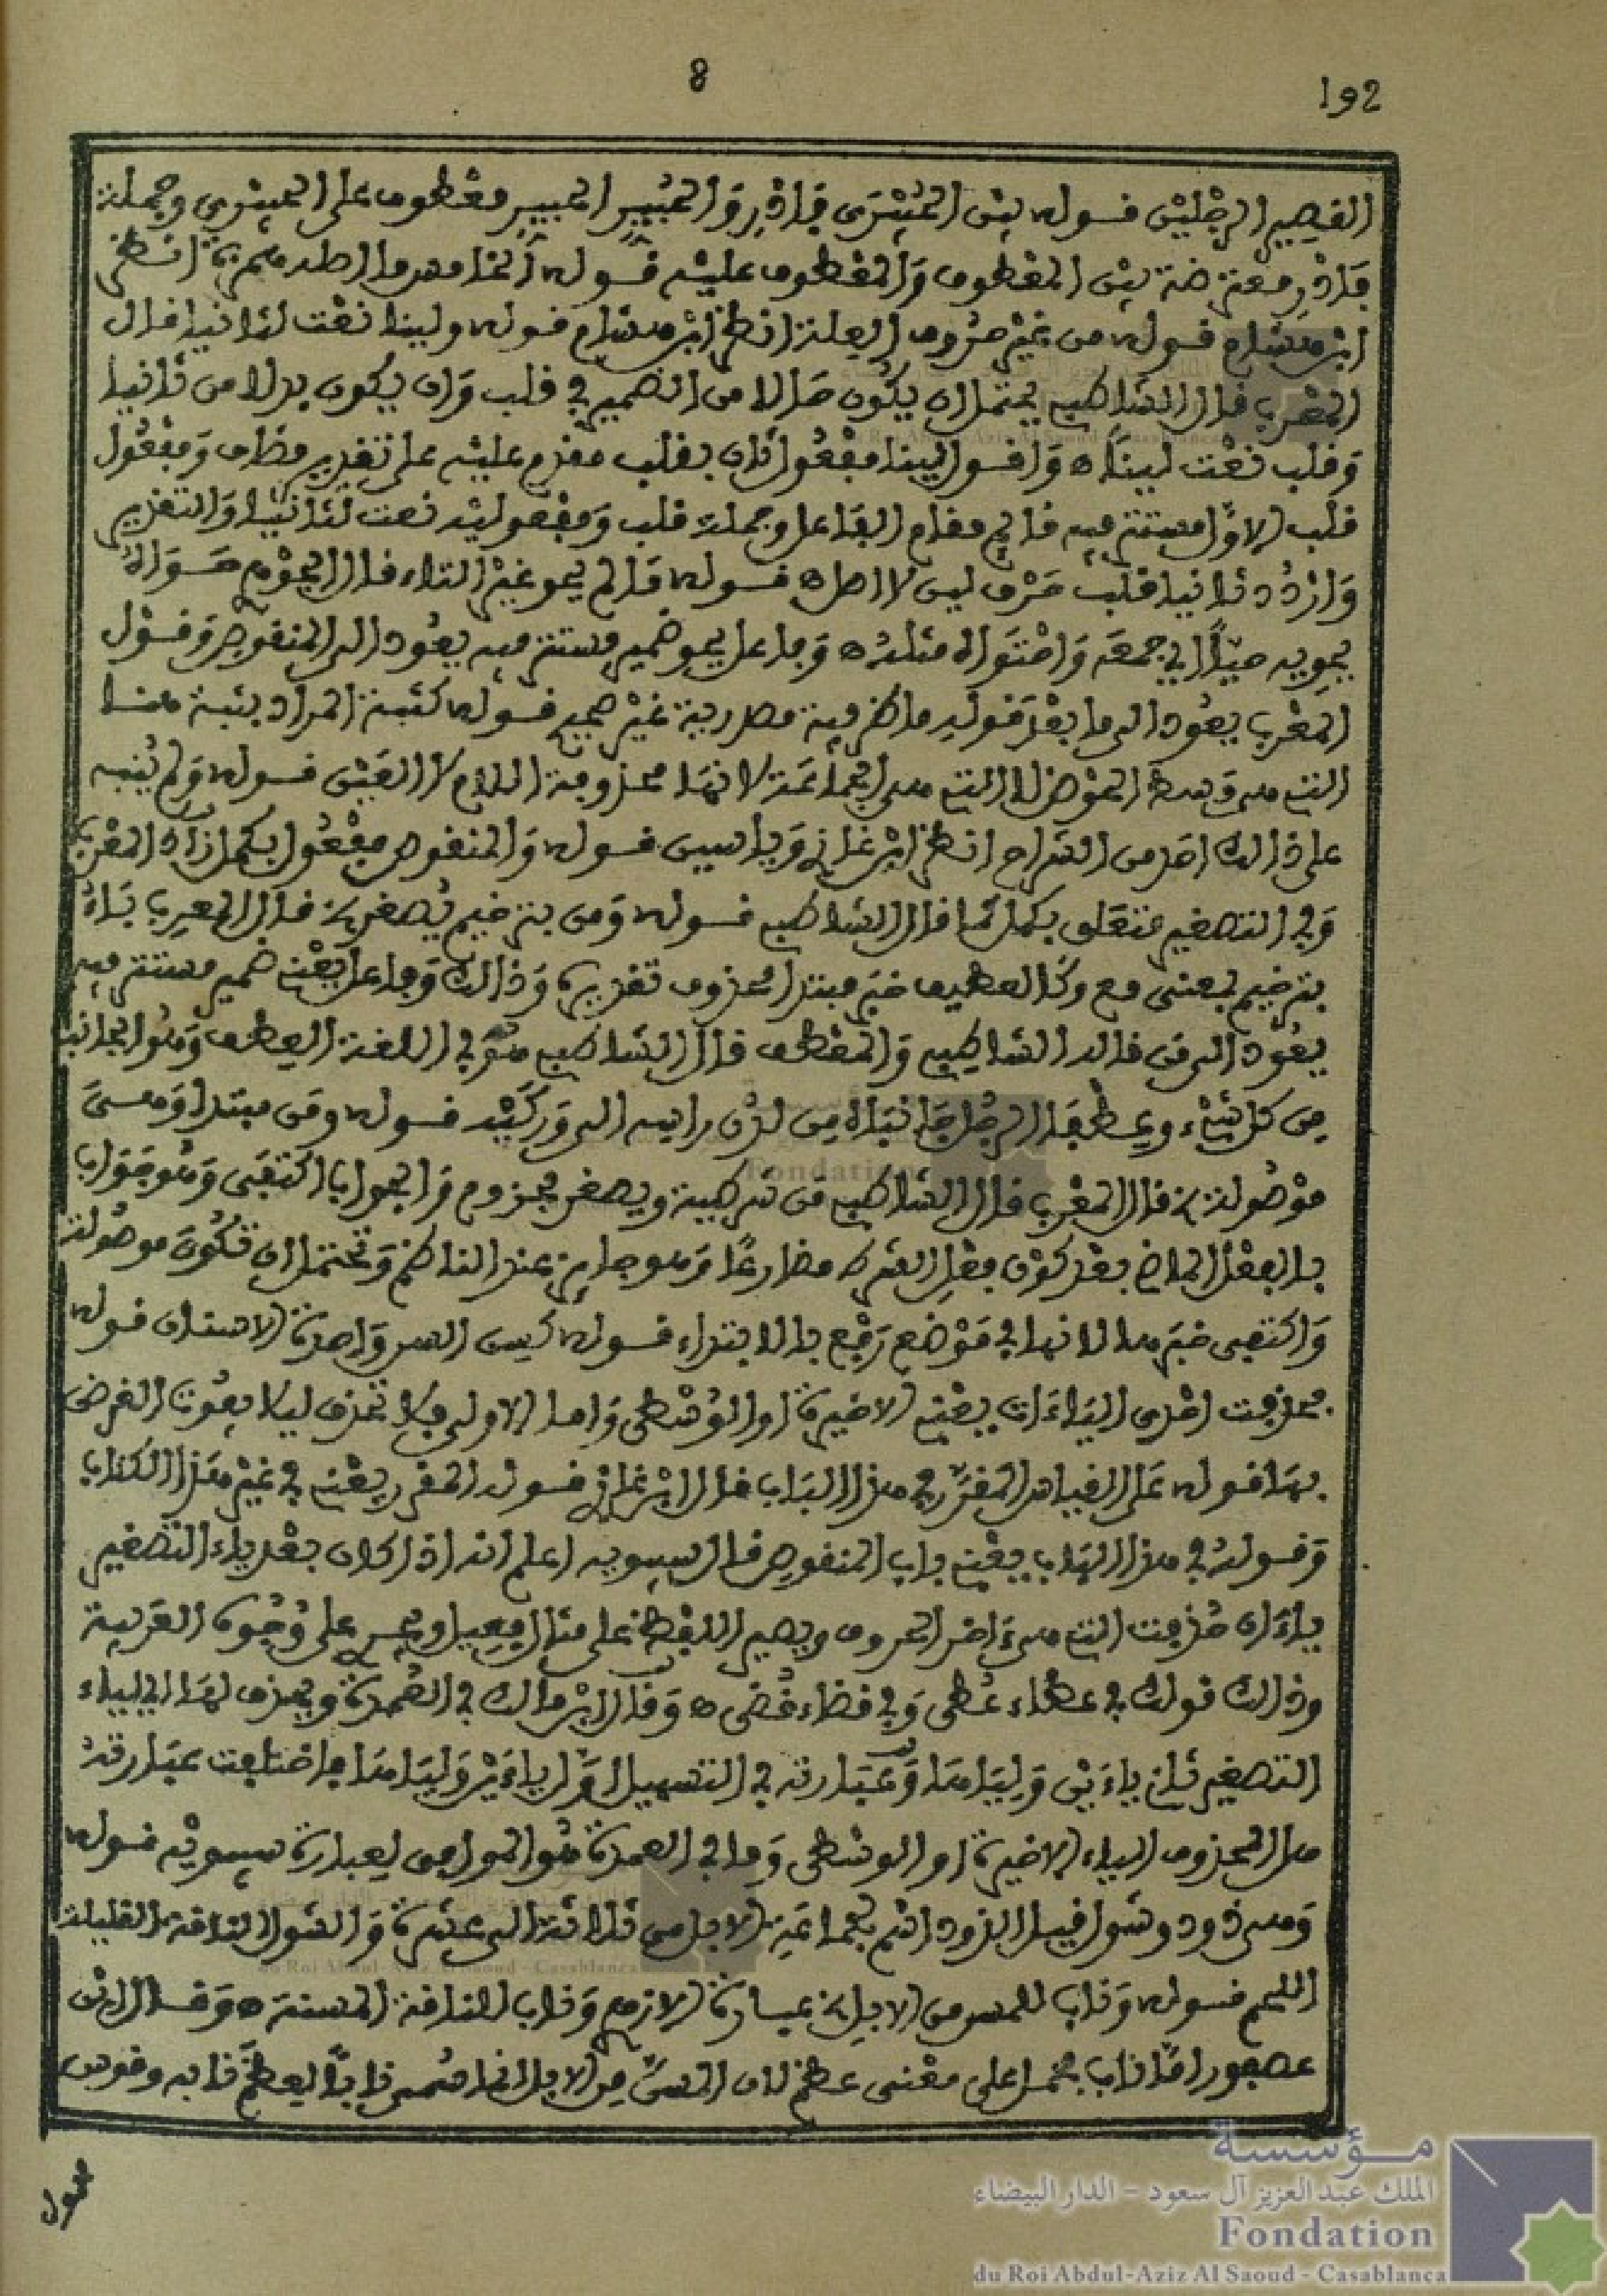 8
192
القصير الرجلين قوله بين الحبيرى فادر والحبير الحبير معطوف على الحبيرى وجملة
فادر معترضة بين المعطوف والمعطوف عليه قوله انظر
ابن هشام قوله من غير حروف العلة انظر ابن هشام قوله ولينا نعت لثانيا قال
المعرب قال الشاطبي يحتمل ان يكون حالا من الضمير في قلب وان يكون بدلا من ثانيا
وقلب نعت لينا ه واقول لينا مفعول ثان بقلب مقدم عليه على تقدير مضاف ومفعول
قلب الاول مستتر فيه قايم مقام الفاعل وجملة قلب ومفعوليه نعت لثانيا والتقدير
واردد ثانيا قلب حرف لين لا اصل ه قوله ما لم يحو غير التاء قال الجوهري حواه
يحويه حيا اي جمعه واحتواه مثله ه وفاعل يحو ضمير مستتر فيه يعود الى المنقوص وقول
المعرب يعود الى ما بعد قوله ما ظرفية مصدرية غير صحيح قوله كثبة المراد بثبة هنا
التي هي وسط الحوض لا التي هي الجماعة لانها محذوفة اللام لا العين قوله ولم ينبه
على ذالك احد من الشراح انظر ابن غازي وياسين قوله والمنقوص مفعول بكمل زاد المعرب
وفي التصغير متعلق بكمل كما قال الشاطبي قوله ومن بترخيم يصغر الخ قال المعرب باء
بترخيم بمعنى مع وكالعطيف خبر مبتدا محذوف تقديره وذالك وفاعل يعني ضمير مستتر فيه
يعود الى من قاله الشاطبي والمعطف قال الشاطبي هو في اللغة العطف وهو الجانب
من كل شيء وعطفا الرجل جانباه من لدن راسه الى وركيه قوله ومن مبتدا وهي
موصولة الخ قال المعرب قال الشاطبي من شرطية ويصغر مجزوم والجواب اكتفى وهو جواب
بالفعل الماضي بعد كون فعل الشرط مضارعا وهو جايز عند الناظم وتحتمل ان تكون موصولة
واكتفى خبرها لانها في موضع رفع بالابتداء قوله كسن السن واحدة الاسنان قوله
فحذفت احدى الياءات يعني الاخيرة او الوسطى واما الاولى فلا تحذف ليلا يفوت الغرض
بها قوله على القياس المقرر في هذا الباب قال ابن غازي قوله المقرر يعني في غير هذا الكتاب
وقوله في هذا الباب يعني باب المنقوص قال سيبويه اعلم انه اذا كان بعد ياء التصغير
ياءان حذفت التي هي ءاخر الحروف ويصير اللفظ على مثال فعيل ويجري على وجوه العربية
وذالك قولك في عطاء عطي وفي قضاء قضي ه وقال ابن مالك في العمدة ويحذف لها اي لياء
التصغير ثان ياءين ولياها وعبارته في التسهيل اول ياءين ولياها فاختلفت عبارته
هل المحذوف الياء الاخيرة او الوسطى وما في العمدة هو الموافق لعبارة سيبويه قوله
وهي ذود وشول قيل الذود اسم لجماعة الابل من ثلاثة الى عشرة والشول الناقة القليلة
اللحم قوله وناب للمسن من الابل الخ عبارة الازهري وناب للناقة المسنة ه وقال ابن
عصفور اما ناب فحمل على معنى عظم لان المسن من الابل انما سمي نابا لعظم نابه وقوس
مؤسسة
الملك عبد العزيز آل سعود - الدار البيضاء
Fondation
du Roi Abdul-Aziz Al Saoud - Casablanca